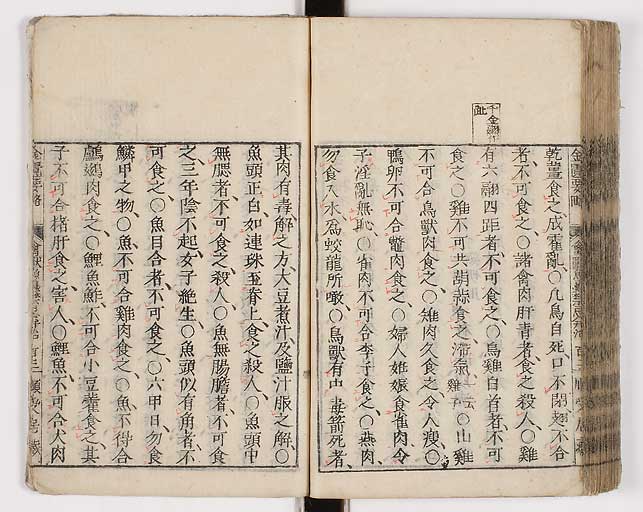 乾薑食之成霍亂○凡鳥自死口不閉翅不合
者不可食之○諸禽肉肝青者食之殺人○雞
有六翮四距者不可食之○烏雞白首者不可
食之○雞不可共葫蒜食之滯氣雞子○山雞
不可合鳥獸肉食之○雉肉久食之令人瘦○
鴨卵不可合鼈肉食之○婦人姙娠食雀肉令
子淫亂無恥○雀肉不可合李子食之○燕肉
勿食入水為蛟龍所噉○鳥獸有中毒箭死者
其肉有毒解之方大豆煮汁及鹽汁服之解○
魚頭正白如連珠至脊上食之殺人○魚頭中
無腮者不可食之殺人○魚無腸膽者不可食
之三年陰不起女子絶生○魚頭似有角者不
可食之○魚目合者不可食之○六甲日勿食
鱗甲之物○魚不可合雞肉食之○魚不得合
鸕鷀肉食之○鯉魚鮓不可合小豆藿食之其
子不可合猪肝食之害人○鯉魚不可合犬肉
金匱要略